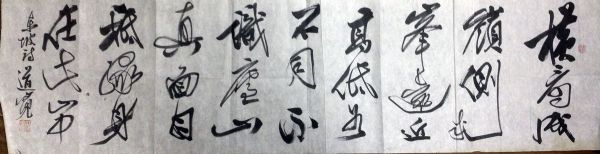 橫看成
嶺側成
峯遠近
高低各
不同不
識廬山
真面目
祇緣身
在此山中
東坡詩 道寬